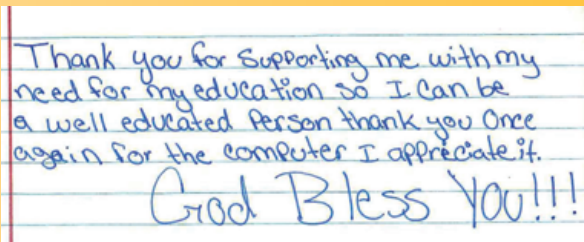 Thank you for Supporting me with my
need for my education so I can be
a well educated Person thank you Once
again for the computer I appreciate it.
God Bless You!!!